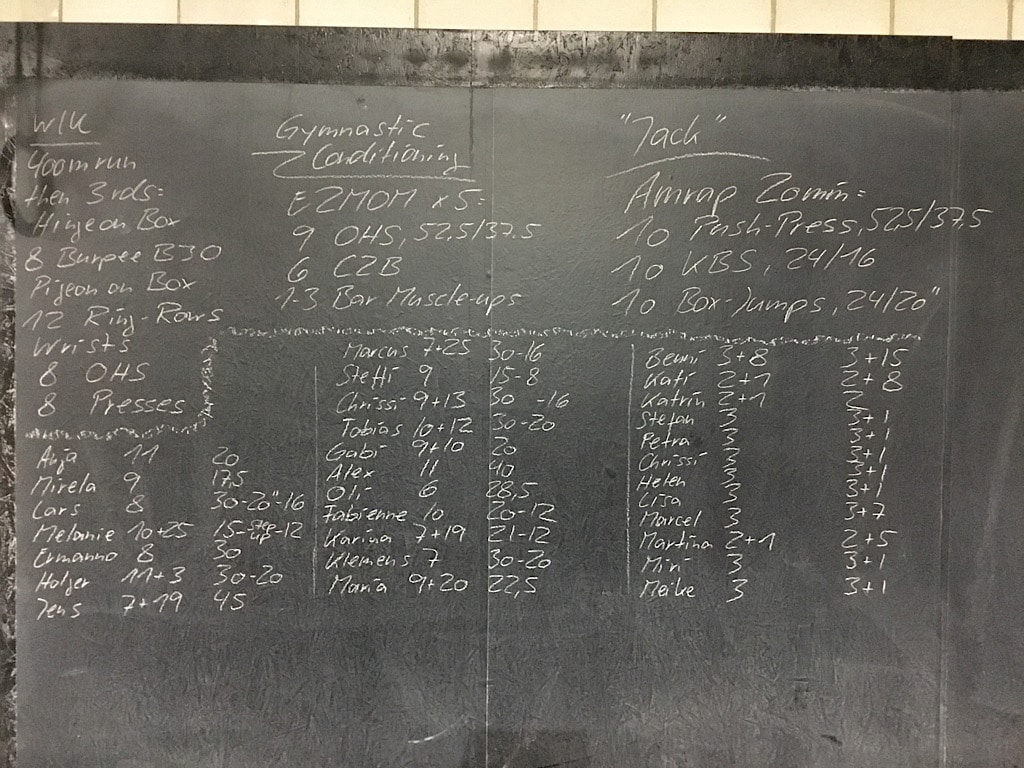 W/U
400m run
then 3 rds:
Hinge on Box
8 Burpee BJO
Pigeon on Box
12 Ring-Rows
Wrists
8 OHS
8 Presses
Gymnastic
Conditioning
E2MOM x5:
9 OHS, 52.5/37.5
6 C2B
1-3 Bar Muscle-ups
"Jack"
Amrap 20min:
10 Push-Press, 52,5/37.5
10 KBS, 24/16
10 Box-Jumps, 24/20"
Anja 11 20
Mirela 9 17.5
Lars 8 30-20"-16
Melanie 10+25 15-step-up-12
Ermanno 8 30
Holger 11+3 30-20
Jens 7+19 45
Marcus 7+25 30-16
Steffi 9 15-8
Chrissi 9+13 30 -16
Tobias 10+12 30-20
Gabi 9+10 20
Alex 11 40
Oli 6 28,5
Fabienne 10 20-12
Karina 7+19 21-12
Klemens 7 30-20
Maria 9+20 22,5
Benni 3+8 3+15
Kati 2+1 2+8
Katrin 2+1 2
Stefan 3 3+1
Petra 3 3+1
Chrissi 3 3+1
Helen 3 3+1
Lisa 3 3+1
Marcel 3 3+7
Martina 2+1 2+5
Miri 3 3+1
Meike 3 3+1